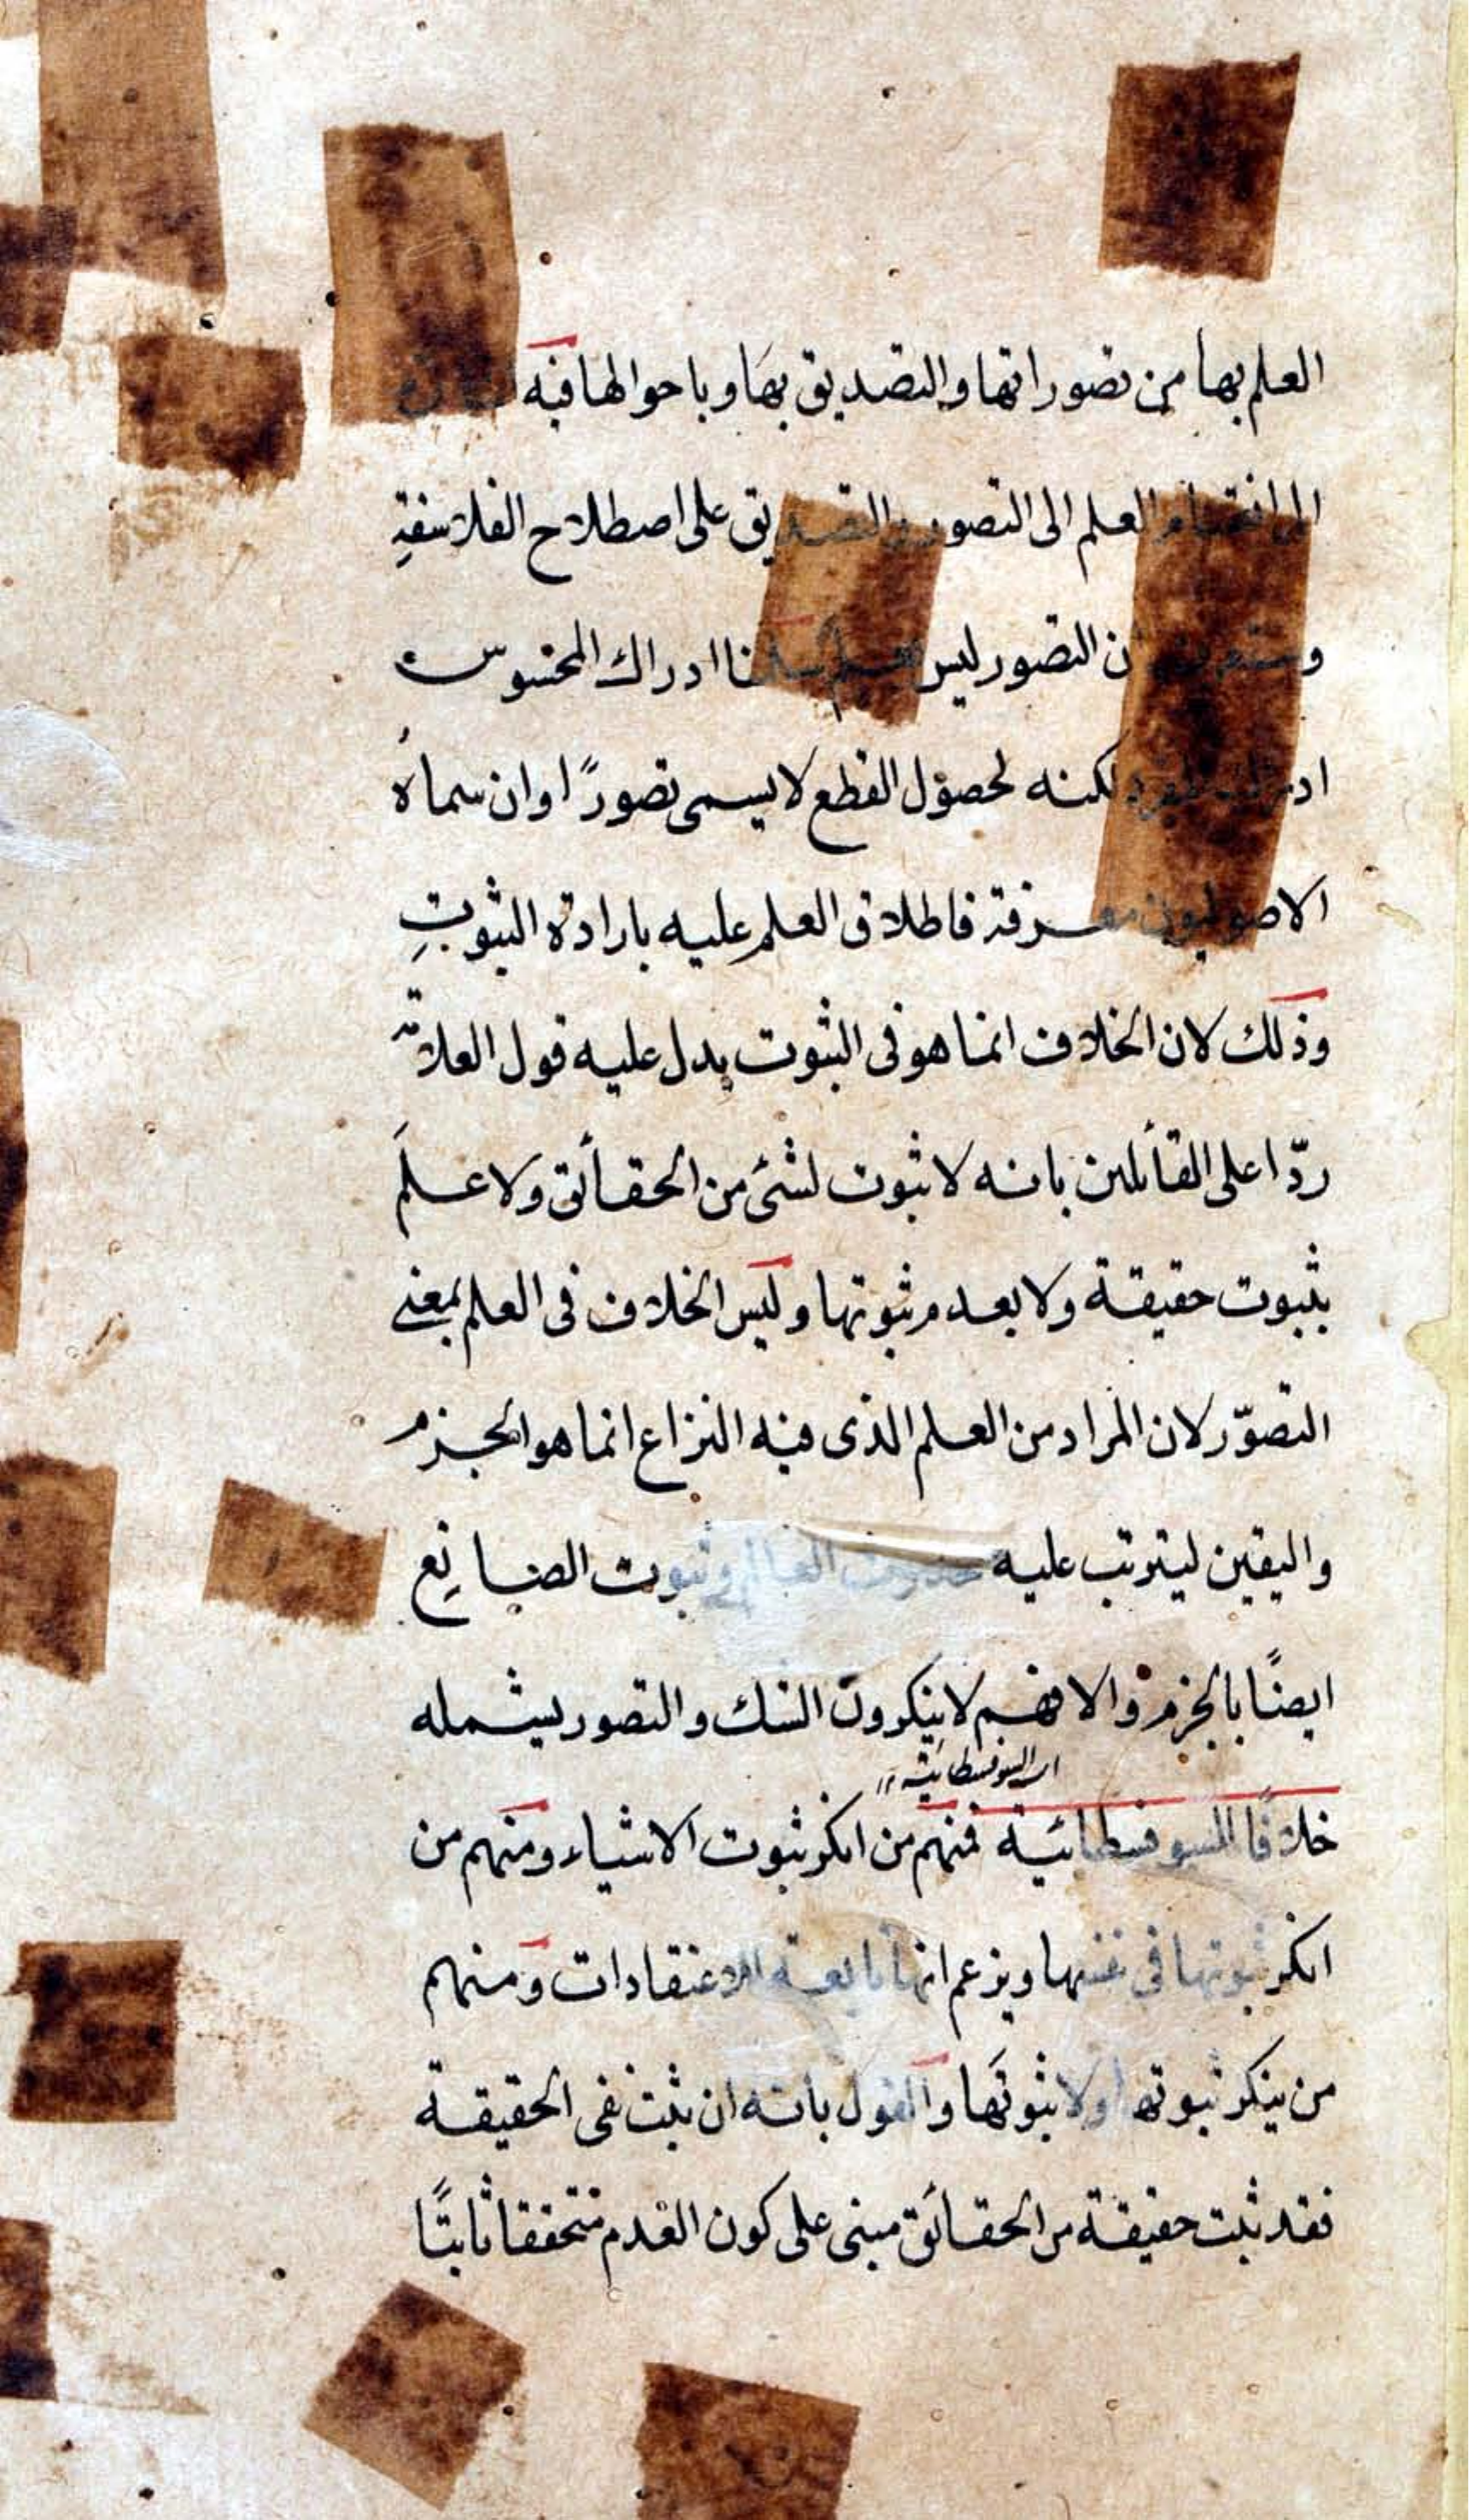 العلم بها من تصوراتها والتصديق بها وباحوالها فيه
الى انقسام العلم الى التصور والتصديق على اصطلاح الفلاسفة
ان التصور ليس بعلم سلمنا ادراك المحسوس
لكنه لحصول القطع لا يسمى تصورًا وان سماه
الاصوليون معرفة فاطلاق العلم عليه بارادة الثبوت
وذلك لان الخلاف انما هو فى الثبوت يدل عليه قول العلامة
ردّا على القائلين بانه لا ثبوت لشئ من الحقائق ولا علم
بثبوت حقيقة ولا بعدم ثبوتها وليس الخلاف فى العلم بمعنى
التصوّر لان المراد من العلم الذى فيه النزاع انما هو الجزم
واليقين ليترتب عليه حدوث العالم وثبوت الصانع
ايضًا بالجزم والا فهم لا ينكرون الشك والتصور يشمله
اى السوفسطائية
خلافًا للسوفسطائية فمنهم من انكر ثبوت الاشياء ومنهم من
انكر ثبوتها فى نفسها ويزعم انها تابعة للاعتقادات ومنهم
من ينكر ثبوتها ولا ثبوتها والقول بانه ان ثبت نفى الحقيقة
فقد ثبت حقيقة من الحقائق مبنى على كون العدم متحققا ثابتًا